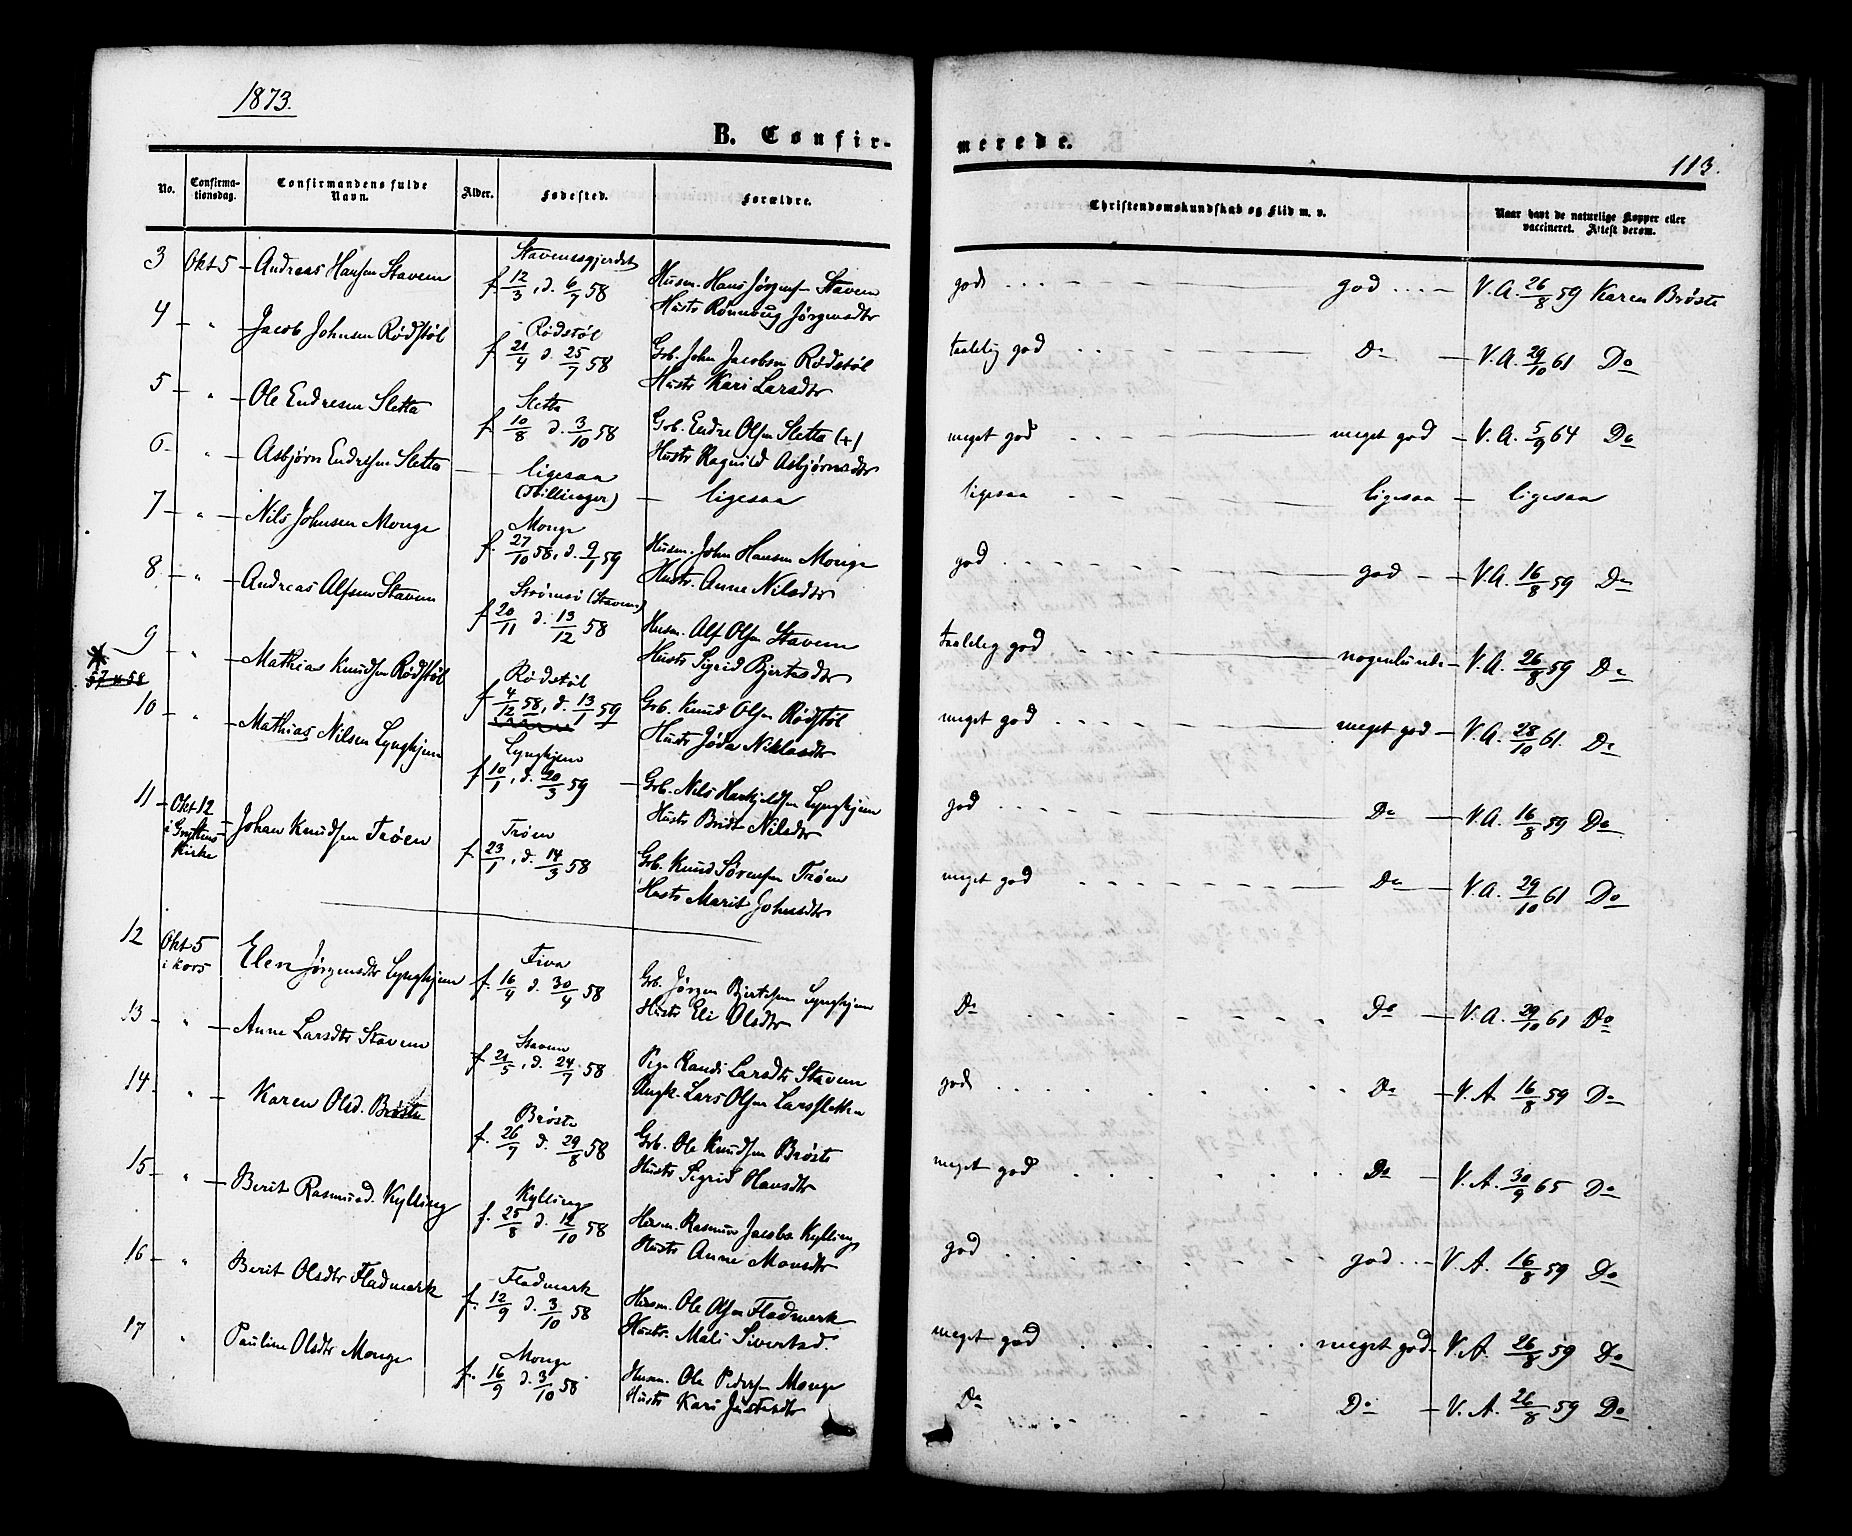 1873.
B. Confir-
merede.
113.
No.
Confirma-
tionsdag.
Confirmandens fulde
Navn.
Alder.
Fødested.
Forældre.
Christendomskundskab og Flid m. v.
Naar havt de naturlige Kopper eller
vaccineret. Attest derom.
3 Okt 5 Andreas Hansen Stavem Stavemsgjerdet
f. 12/3, d. 6/7 58 Husm. Hans Jørgensen Stavem
Hustr Rønnaug Jørgensdtr
god god V.A. 26/8 59 Karen Brøste
4 " Jacob Johnsen Rødstøl Rødstøl
f. 21/4 d. 25/7 58 Grb. John Jacobsen Rødstøl
Hustr Kari Larsdtr
taalelig god Do V.A. 29/10 61 Do
5 " Ole Endresen Sletta Sletta
f. 10/8 d. 3/10 58 Grb. Endre Olsen Sletta (+)
Hustr Ragnild Asbjørnsdtr
meget god meget god V.A. 5/9 64 Do
6 " Asbjørn Endresen Sletta ligesaa
(Tvillinger) ligesaa
ligesaa ligesaa ligesaa
7 " Nils Johnsen Monge Monge
f. 27/10 58, d. 9/1 59 Husm. John Hansen Monge
Hustr. Anne Nilsdtr
god god V.A. 16/8 59 Do
8 " Andreas Alfsen Stavem Strømsø (Stavem)
f. 20/11 d. 13/12 58 Husm. Alf Olsen Stavem
Hustr Sigrid Bjertesdtr
taalelig god nogenlunde V.A. 26/8 59 Do
9 " Mathias Knudsen Rødstøl Rødstøl
57 58
f. 4/12 58, d. 13/1 59 Grb. Knud Olsen Rødstøl
Hustr Jøda Niklasdtr
meget god meget god V.A. 28/10 61. Do
10 " Mathias Nilsen Lynghjem Lynghjem
f. 10/1, d. 20/3 59 Grb. Nils Lynghjem
Hustr Britt Nilsdtr
god Do V.A. 16/8 59 Do
11 Okt 12
i Gryttens
Kirke
Johan Knudsen Trøen Trøen
f. 23/1, d. 14/3 58 Grb. Knud Sørensen Trøen
Hustr Marit Johnsdtr
meget god Do V.A. 29/10 61 Do
12 Okt 5
i Kors
Elen Jørgensdtr Lynghjem Fiva
f. 16/4 d. 30/4 58 Grb. Jørgen Bjertesen Lynghjem
Hustr Eli Olsdtr
Do Do V.A. 29/10 61 Do
13 " Anne Larsdtr Stavem Stavem
f. 21/5, d. 24/7 58 Pige Randi Larsdtr Stavem
Ungk. Lars Olsen Larssletten
god Do V.A 16/8 59 Do
14 " Karen Olsd. Brøste Brøste
f. 26/7 d. 29/8 58 Grb. Ole Knudsen Brøste
Hustr Sigrid Hansdtr
meget god Do V.A. 30/9 65 Do
15 " Berit Rasmusd. Kylling Kylling
f. 25/8 d. 12/10 58 Husm. Rasmus Jacobs Kylling
Hustr Anne Monsdtr
god god V.A. 16/8 59 Do
16 " Berit Olsdtr Fladmark Fladmark
f. 12/9 d. 3/10 58 Husm. Ole Olsen Fladmark
Hustr. Mali Sivertsd.
meget god meget god V.A. 26/8 59 Do
17 " Pauline Olsdtr Monge Monge
f. 16/9 d. 3/10 58 Husm. Ole Pedersen Monge
Hustr Kari Justesdtr
Do Do V.A. 26/8 59 Do